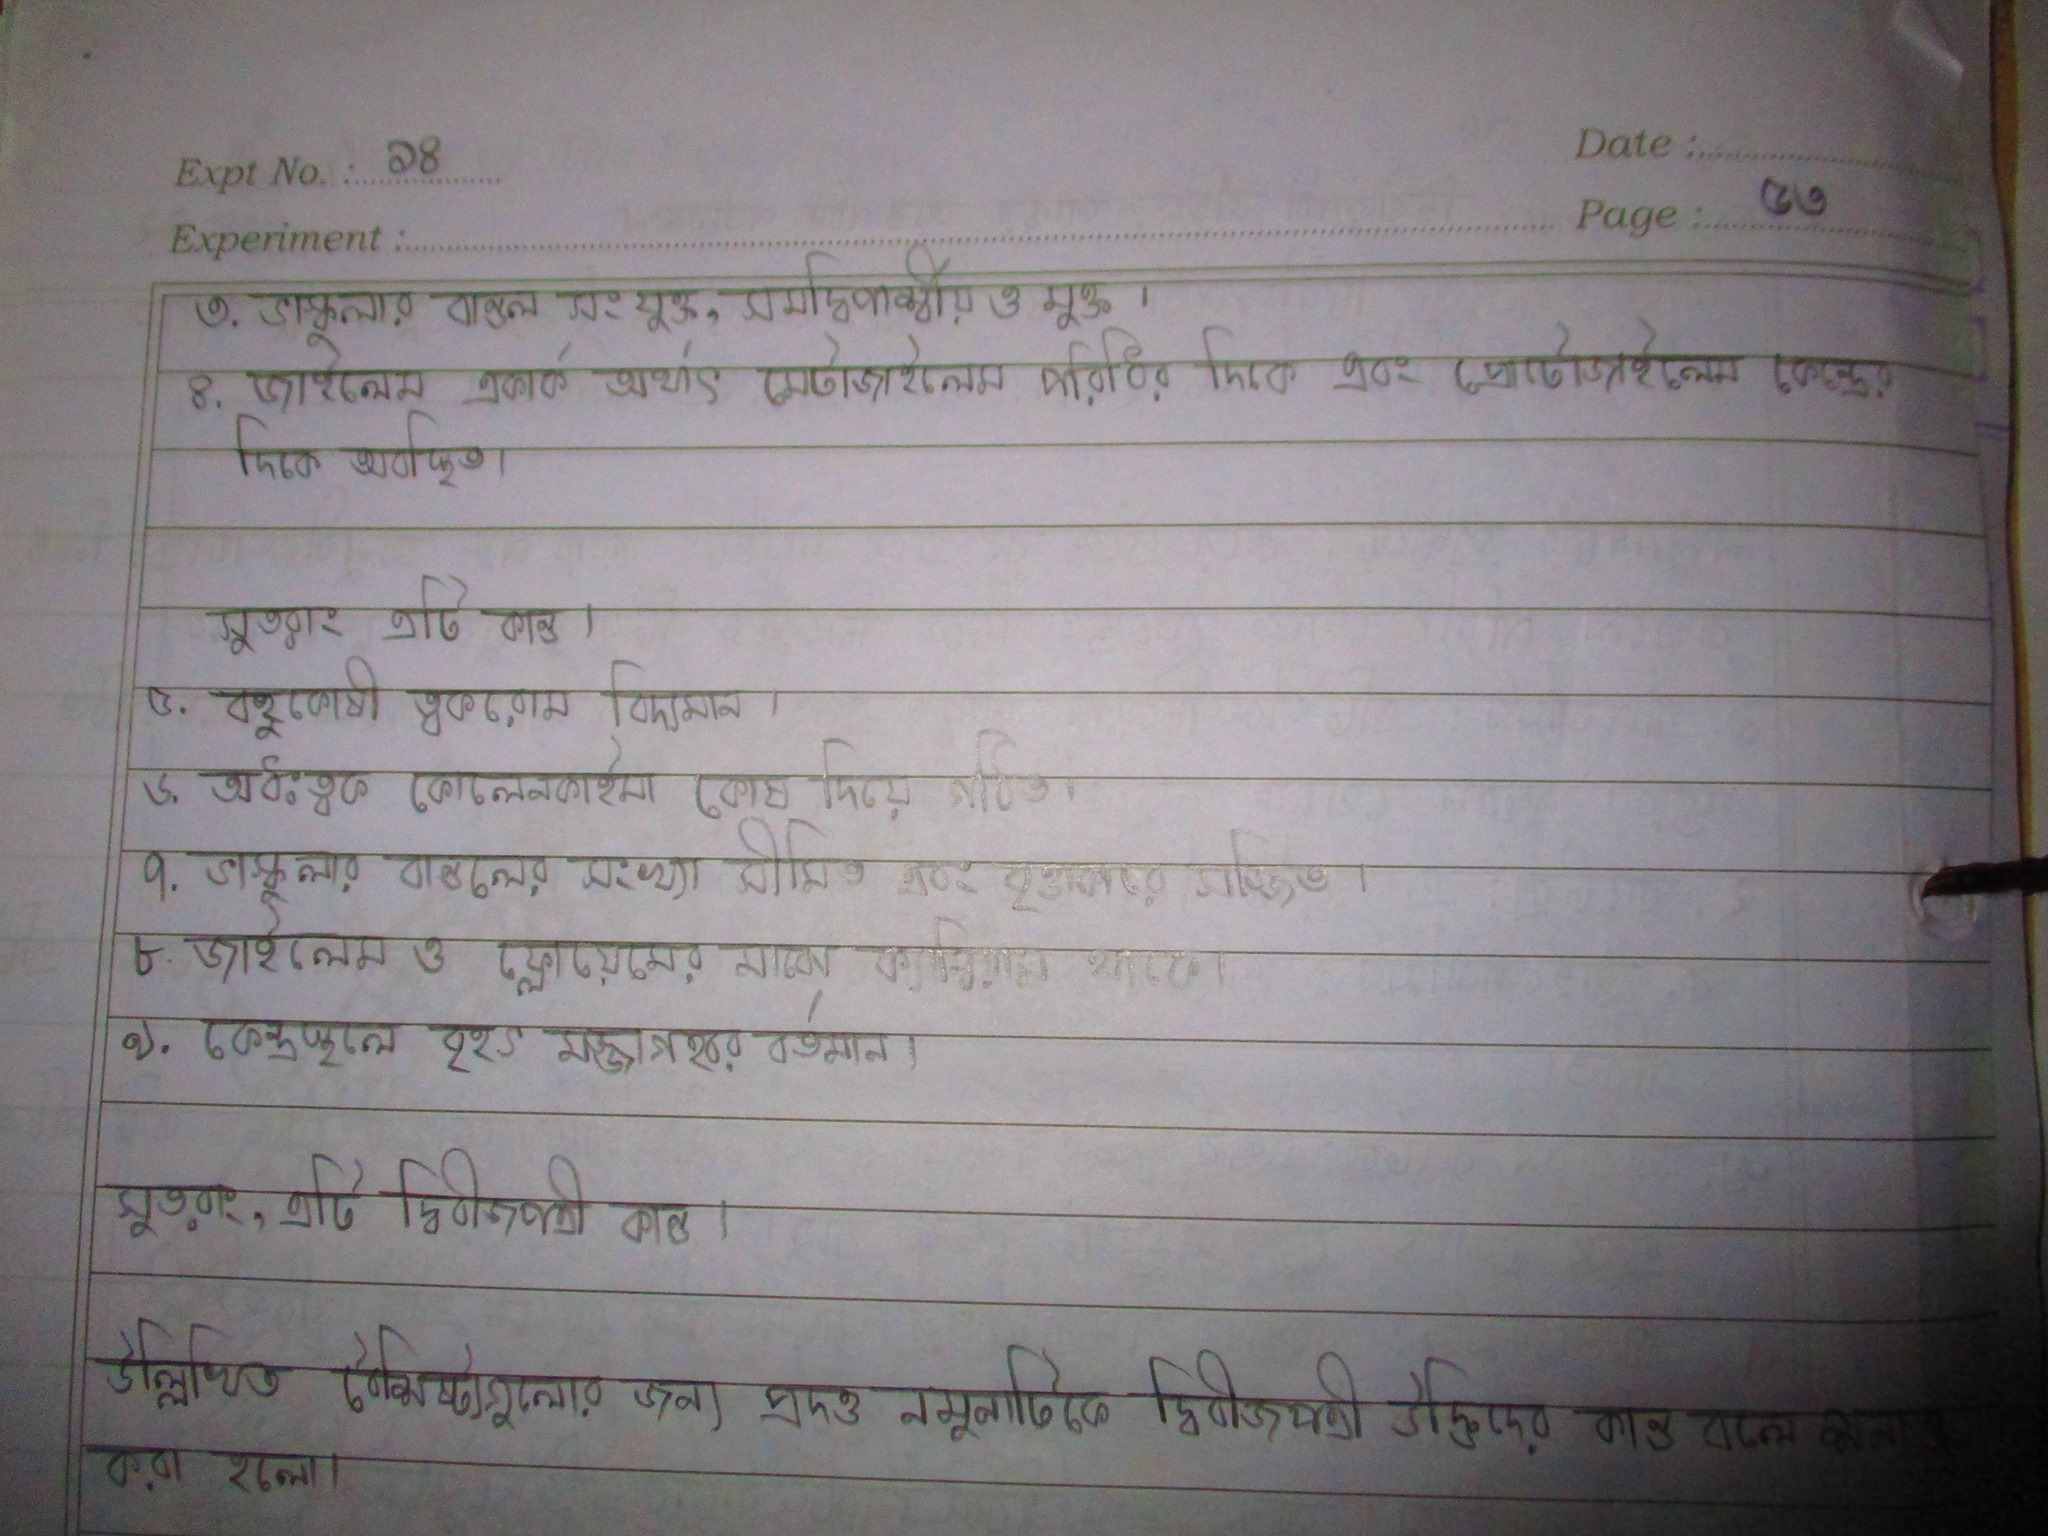 Expt No. : ১৪
Date :
Page : ৫৩
Experiment :
৩. ভাস্কুলার বান্ডল সংযুক্ত, সমদ্বিপার্শ্বীয় ও মুক্ত।
৪. জাইলেম এক্সার্ক অর্থাৎ মেটাজাইলেম পরিধির দিকে এবং প্রোটোজাইলেম কেন্দ্রের
দিকে অবস্থিত।
সুতরাং এটি কান্ড।
৫. বহুকোষী ত্বকরোম বিদ্যমান।
৬. অধঃত্বক কোলেনকাইমা কোষ দিয়ে গঠিত।
৭. ভাস্কুলার বান্ডলের সংখ্যা সীমিত এবং বৃত্তাকারে সজ্জিত।
৮. জাইলেম ও ফ্লোয়েমের মাঝে ক্যাম্বিয়াম থাকে।
৯. কেন্দ্রস্থলে বৃহৎ মজ্জাগহ্বর বর্তমান।
সুতরাং, এটি দ্বিবীজপত্রী কান্ড।
উল্লিখিত বৈশিষ্ট্যগুলোর জন্য প্রদত্ত নমুনাটিকে দ্বিবীজপত্রী উদ্ভিদের কান্ড বলে
করা হলো।